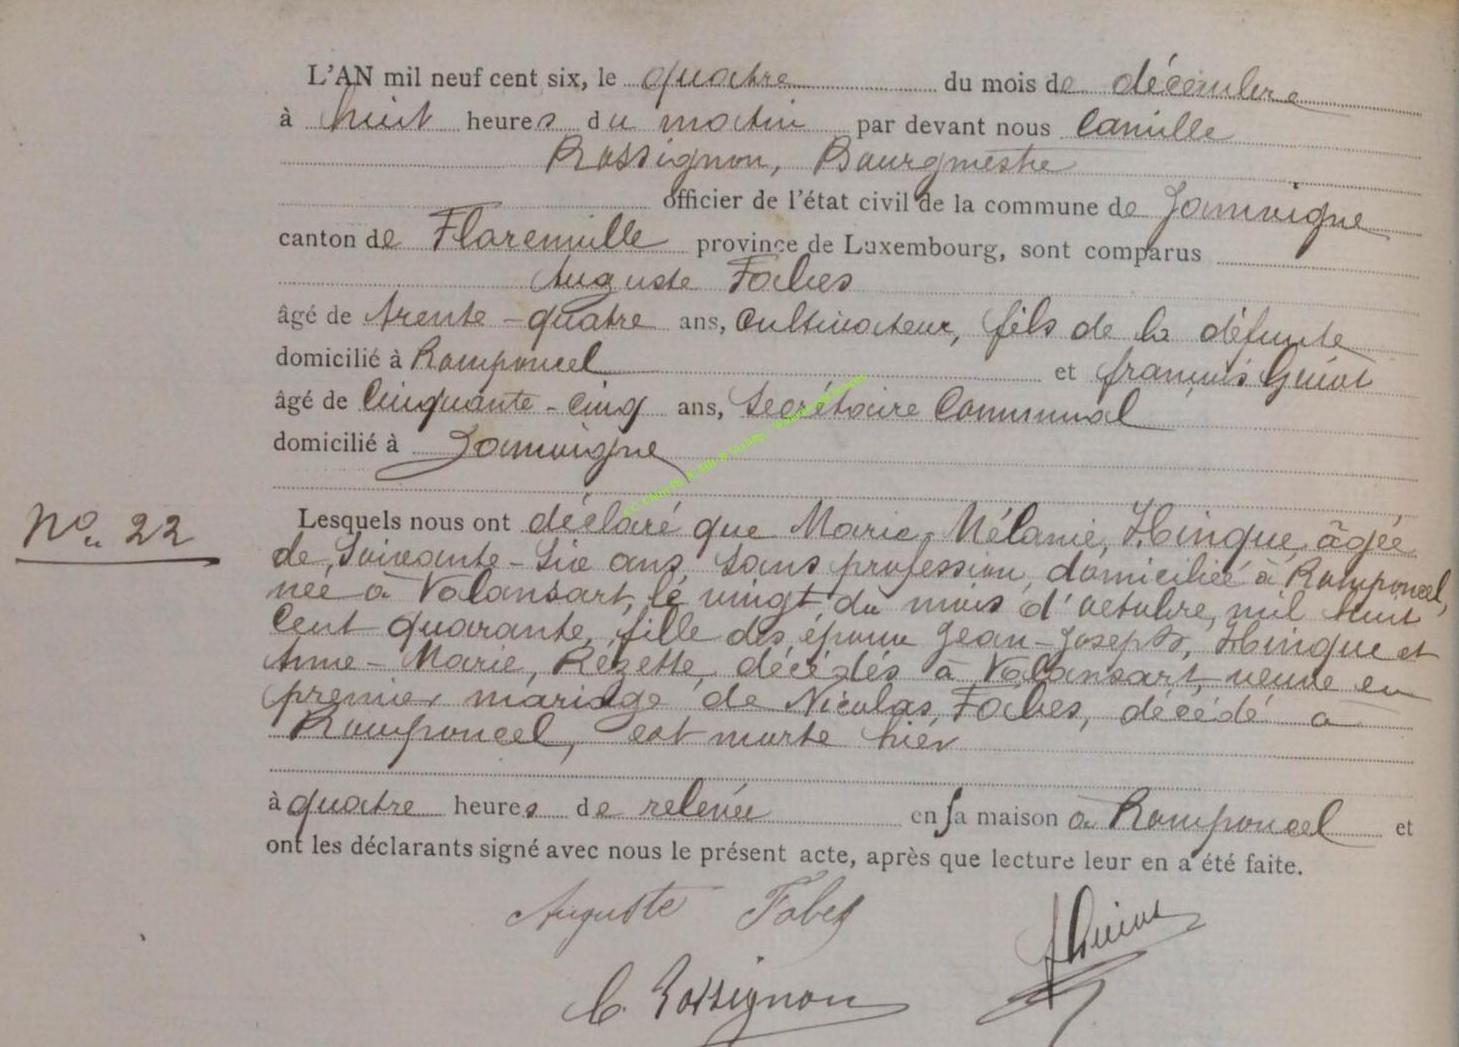 L'AN mil neuf cent six, le quatre du mois de décembre
à huit heures du matin par devant nous Camille
Rossignon, Bourgmestre
officier de l'état civil de la commune de Jamoigne
canton de Florenville province de Luxembourg, sont comparus
Auguste Fabes
âgé de trente-quatre ans, cultivateur, fils de la défunte
domicilié à Romponcel et françois Guiot
âgé de Cinquante-cinq ans, Secrétaire Communal
domicilié à Jamoigne
N° 22
Lesquels nous ont déclaré que Marie, Mélanie, Hinque, âgée
de, Soixante-Six ans, sans profession, domiciliée à Romponcel,
née à Valansart, le vingt du mois d'octobre, mil huit
Cent quarante, fille des époux Jean-Joseph, Hinque et
Anne-Marie, Rézette, décédés à Valansart, veuve en
premier mariage de Nicolas, Fabes, décédé à
Romponcel, est morte hier
à quatre heures de relevée en sa maison à Romponcel et
ont les déclarants signé avec nous le présent acte, après que lecture leur en a été faite.
Auguste Fabes
C. Rossignon